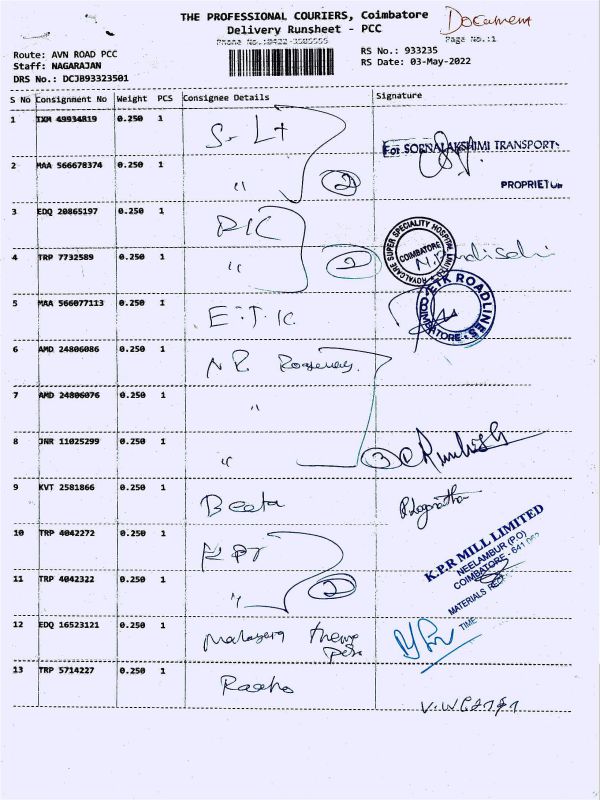 THE PROFESSIONAL COURIERS, Coimbatore
Document
Delivery Runsheet - PCC
Page No.:1
Route: AVN ROAD PCC
RS No.: 933235
Staff: NAGARAJAN
RS Date: 03-May-2022
DRS No.: DCJB93323501
S No Consignment No Weight PCS Consignee Details Signature
1 IXM 49934819 0.250 1 S- Lt
For SORNALAKSHIMI TRANSPORTS
2 MAA 566678374 0.250 1 " 2
PROPRIETOR
3 EDQ 20865197 0.250 1
ROYALCARE SUPER SPECIALITY HOSPITAL COIMBATORE
4 TRP 7732589 0.250 1 " 2
5 MAA 566077113 0.250 1 E.T.K.
ETK ROADLINES COIMBATORE
6 AMD 24806086 0.250 1 N R
7 AMD 24806076 0.250 1 "
8 JNR 11025299 0.250 1 " 3
9 KVT 2581866 0.250 1 Beeta
K.P.R MILL LIMITED
NEELAMBUR (PO)
COIMBATORE - 641
MATERIALS
TIME
10 TRP 4042272 0.250 1
11 TRP 4042322 0.250 1 " 2
12 EDQ 16523121 0.250 1
13 TRP 5714227 0.250 1